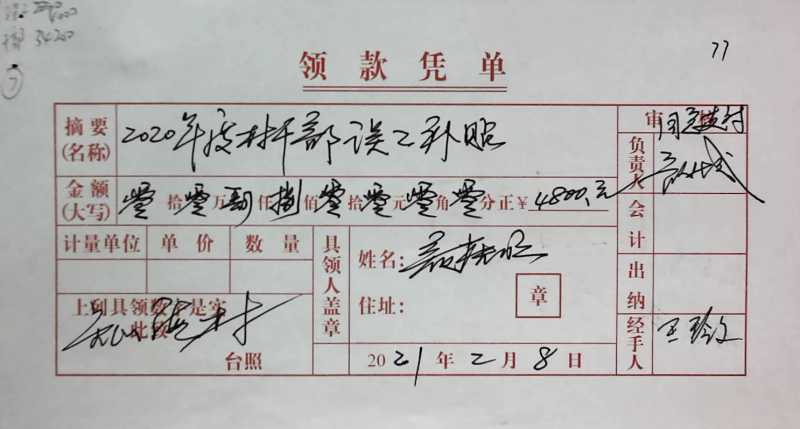 34200
7
77
领款凭单
摘要(名称) 2020年度村干部误工补贴
审 同意支付
金额(大写) 零拾零万 仟捌佰零拾零元零角零分正¥4800.元
负责人
计量单位 单价 数量
会计
具领人盖章
姓名:
章
住址:
出纳
上列具领数 是实
此致
村
台照
2021年二月8日
经手人 王